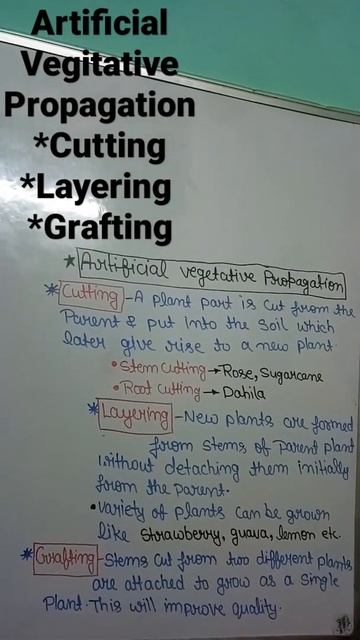 Artificial
Vegitative
Propagation
*Cutting
*Layering
*Grafting
★Artificial vegetative Propagation
*Cutting-A plant part is cut from the
Parent & put into the soil which
later give rise to a new plant.
•Stem cutting→Rose, Sugarcane
•Root cutting→Dahila
*Layering-New plants are formed
from stems of parent plant
without detaching them initially
from the parent.
•variety of plants can be grown
like strawberry, guava, lemon etc.
*Grafting-Stems cut from two different plants
are attached to grow as a single
plant. This will improve quality.